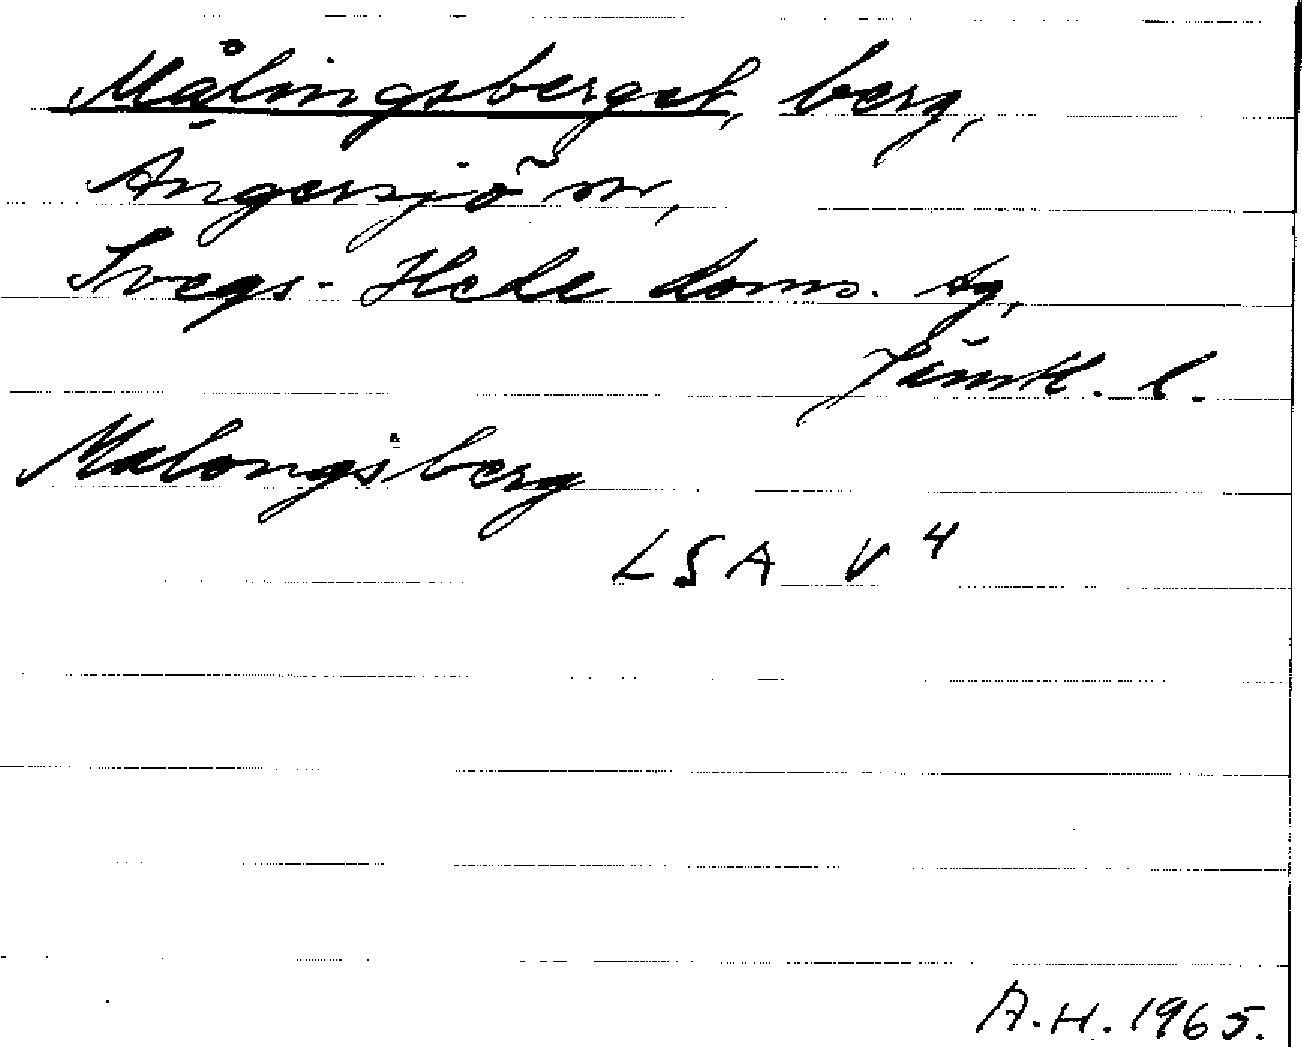 Målingsberget, berg,
Ängersjö sn,
Svegs-Hede doms. tg,
Jämtl. l.
Malongsberg
LSA V 4
A.H. 1965.